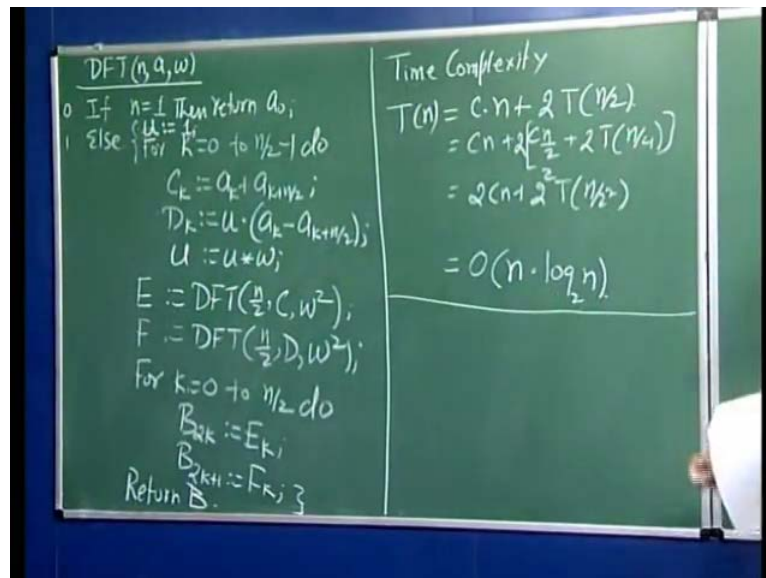 DFT(n, a, ω)
0 If n=1 Then return a₀;
1 Else { u := 1;
For K=0 to n/2-1 do
C_K := a_K + a_{K+n/2};
D_K := u·(a_K - a_{K+n/2});
u := u*ω;
E := DFT(n/2, C, ω²);
F := DFT(n/2, D, ω²);
For K=0 to n/2 do
B_{2K} := E_K;
B_{2K+1} := F_K; }
Return B.
Time Complexity
T(n) = C·n + 2 T(n/2)
= Cn + 2[Cn/2 + 2 T(n/4)]
= 2Cn + 2² T(n/2²)
= O(n·log₂n).